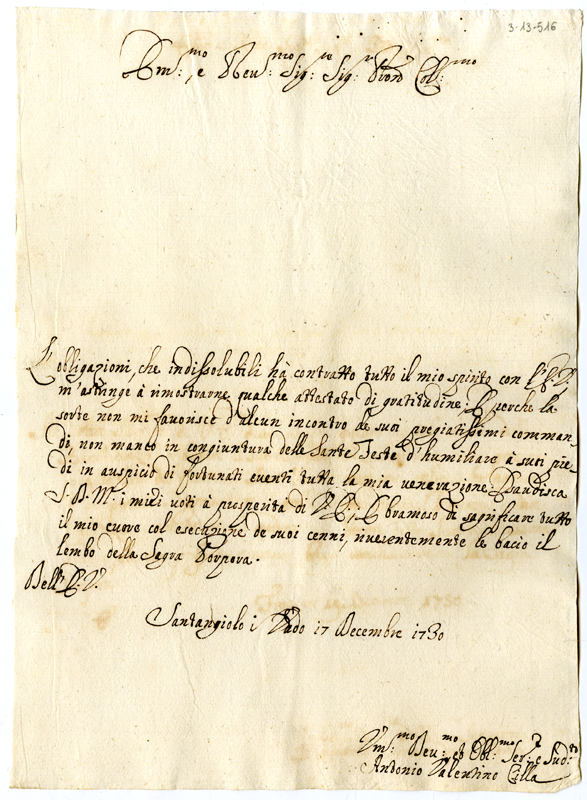 3-13-516
Em:mo, e Reu:mo Sig:re Sig:r Pron Coll:mo
L'obligazioni, che indissolubili hà contratto tutto il mio spirito con V. E. V.
m'astringe à rimostrarne qualche attestato di gratitudine. E perche la
sorte non mi favorisce d'alcun incontro de suoi pregiatissimi comman
di, non manco in congiuntura delle Sante Feste d'humiliare à suoi pie
di in auspicio di fortunati eventi tutta la mia venerazione. Gradisca
S. D. M. i miei voti à prosperità di V. E., E bramoso di sagrificare tutto
il mio cuore col esecuzione de suoi cenni, riverentemente le bacio il
lembo della Sagra Porpora.
Dell' E. V.
Santangiolo i Vado 17 Decembre 1730
Um:mo Deu:mo et Obl:mo Ser:e e Sud:to
Antonio Valentino Cilla